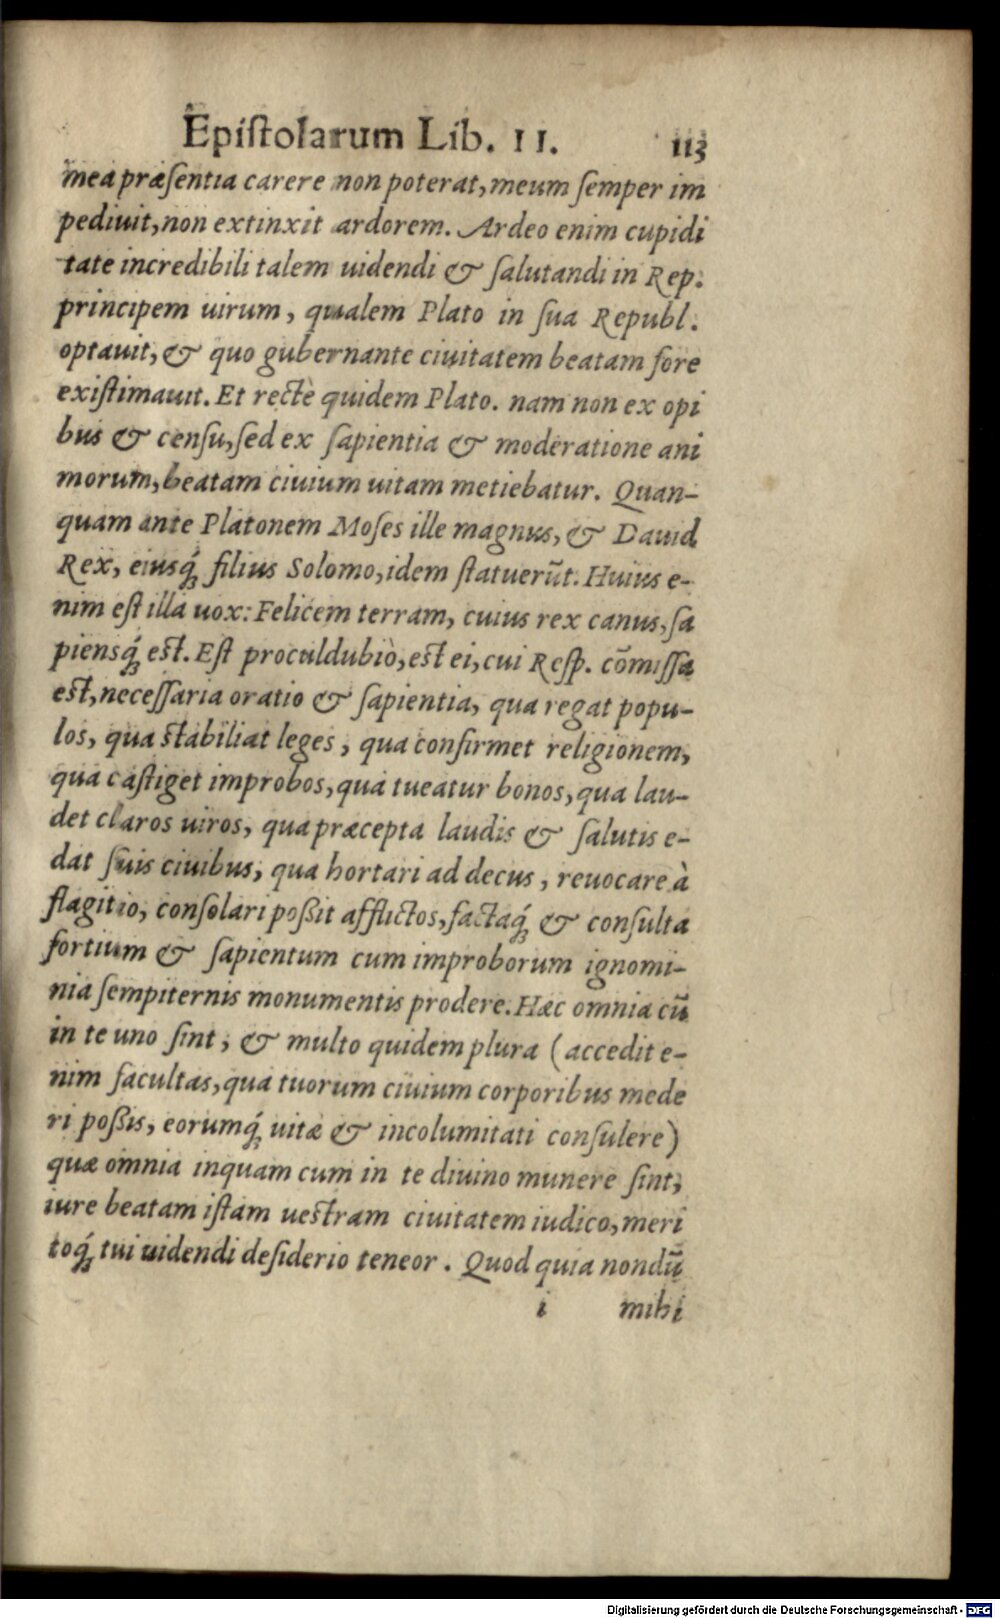 Epistolarum Lib. II. 113
mea præsentia carere non poterat, meum semper im
pediuit, non extinxit ardorem. Ardeo enim cupidi
tate incredibili talem uidendi & salutandi in Rep.
principem uirum, qualem Plato in sua Republ.
optauit, & quo gubernante ciuitatem beatam fore
existimauit. Et rectè quidem Plato. nam non ex opi
bus & censu, sed ex sapientia & moderatione ani
morum, beatam ciuium uitam metiebatur. Quan-
quam ante Platonem Moses ille magnus, & Dauid
Rex, eiusq́; filius Solomo, idem statuerūt. Huius e-
nim est illa uox: Felicem terram, cuius rex canus, sa
piensq́; est. Est proculdubiò, est ei, cui Resp. cōmissa
est, necessaria oratio & sapientia, qua regat popu-
los, qua stabiliat leges, qua confirmet religionem,
qua castiget improbos, qua tueatur bonos, qua lau-
det claros uiros, qua præcepta laudis & salutis e-
dat suis ciuibus, qua hortari ad decus, reuocare à
flagitio, consolari poßit afflictos, factaq́; & consulta
fortium & sapientum cum improborum ignomi-
nia sempiternis monumentis prodere. Hæc omnia cū
in te uno sint, & multo quidem plura (accedit e-
nim facultas, qua tuorum ciuium corporibus mede
ri poßis, eorumq́; uitæ & incolumitati consulere)
quæ omnia inquam cum in te diuino munere sint,
iure beatam istam uestram ciuitatem iudico, meri
toq́; tui uidendi desiderio teneor. Quod quia nondū
i mihi
Digitalisierung gefördert durch die Deutsche Forschungsgemeinschaft - DFG